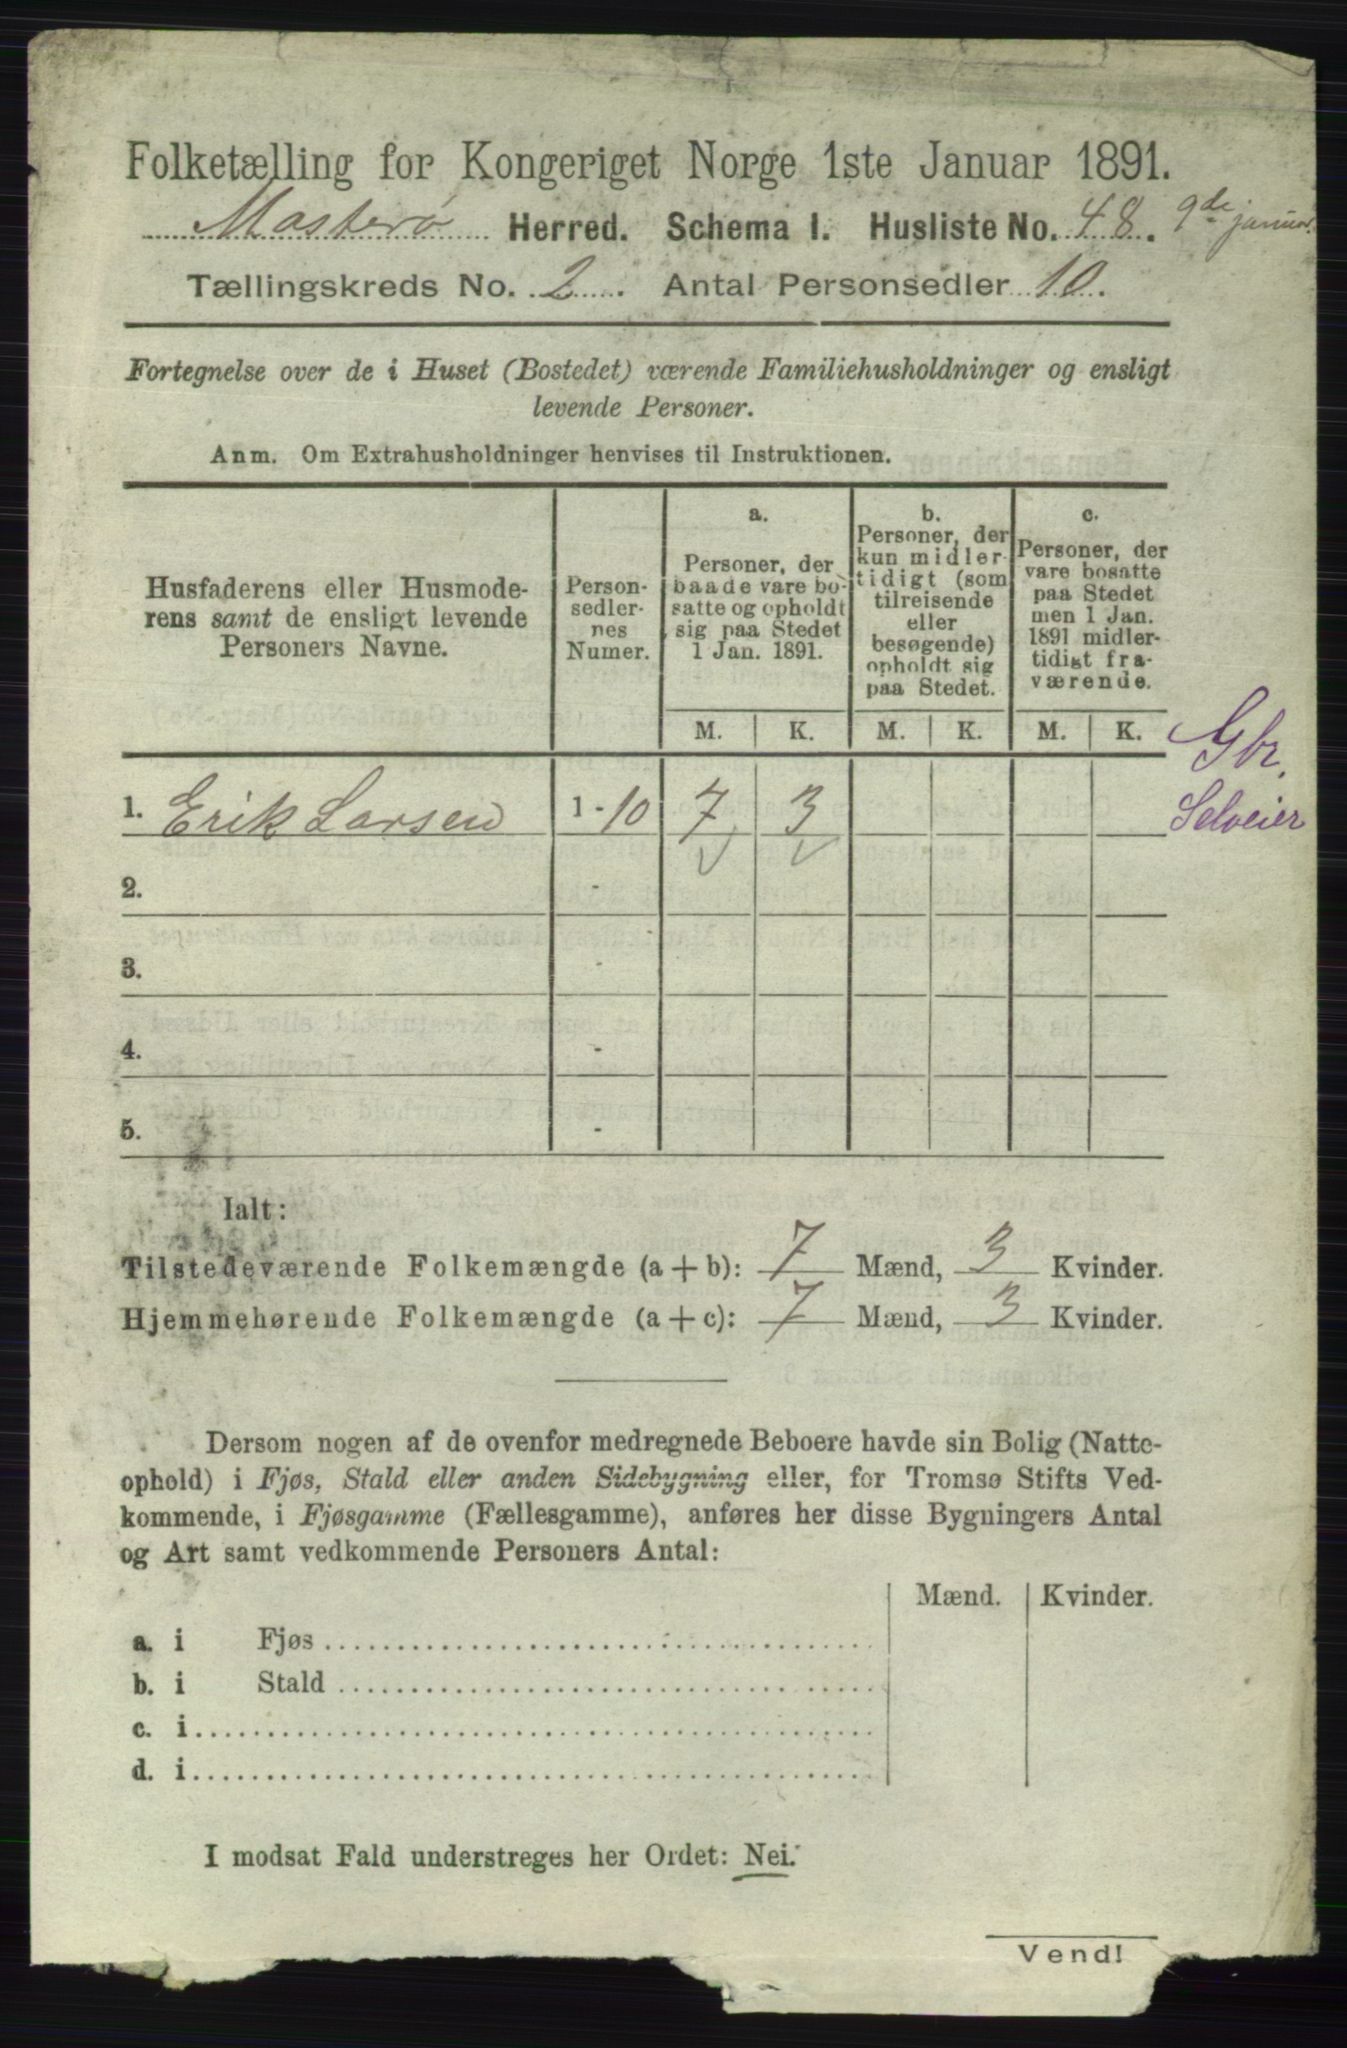 Folketælling for Kongeriget Norge 1ste Januar 1891.
Mosterø Herred. Schema I. Husliste No. 48. 9de januar.
Tællingskreds No. 2. Antal Personsedler 10.
Fortegnelse over de i Huset (Bostedet) værende Familiehusholdninger og ensligt
levende Personer.
Anm. Om Extrahusholdninger henvises til Instruktionen.
Husfaderens eller Husmode-
rens samt de ensligt levende
Personers Navne.
Person-
sedler-
nes
Numer.
a.
Personer, der
baade vare bo-
satte og opholdt
sig paa Stedet
1 Jan. 1891.
b.
Personer, der
kun midler-
tidigt (som
tilreisende
eller
besøgende)
opholdt sig
paa Stedet.
c.
Personer, der
vare bosatte
paa Stedet
men 1 Jan.
1891 midler-
tidigt fra-
værende.
M. K. M. K. M. K.
Gbr.
Selveier
1. Erik Larsen 1-10 7 3
2. -
3. -
4. -
5. -
Ialt:
Tilstedeværende Folkemængde (a + b): 7 Mænd, 3 Kvinder.
Hjemmehørende Folkemængde (a + c): 7 Mænd, 3 Kvinder.
Dersom nogen af de ovenfor medregnede Beboere havde sin Bolig (Natte-
ophold) i Fjøs, Stald eller anden Sidebygning eller, for Tromsø Stifts Ved-
kommende, i Fjøsgamme (Fællesgamme), anføres her disse Bygningers Antal
og Art samt vedkommende Personers Antal:
Mænd. Kvinder.
a. i Fjøs
b. i Stald
c. i
d. i
I modsat Fald understreges her Ordet: Nei.
Vend!